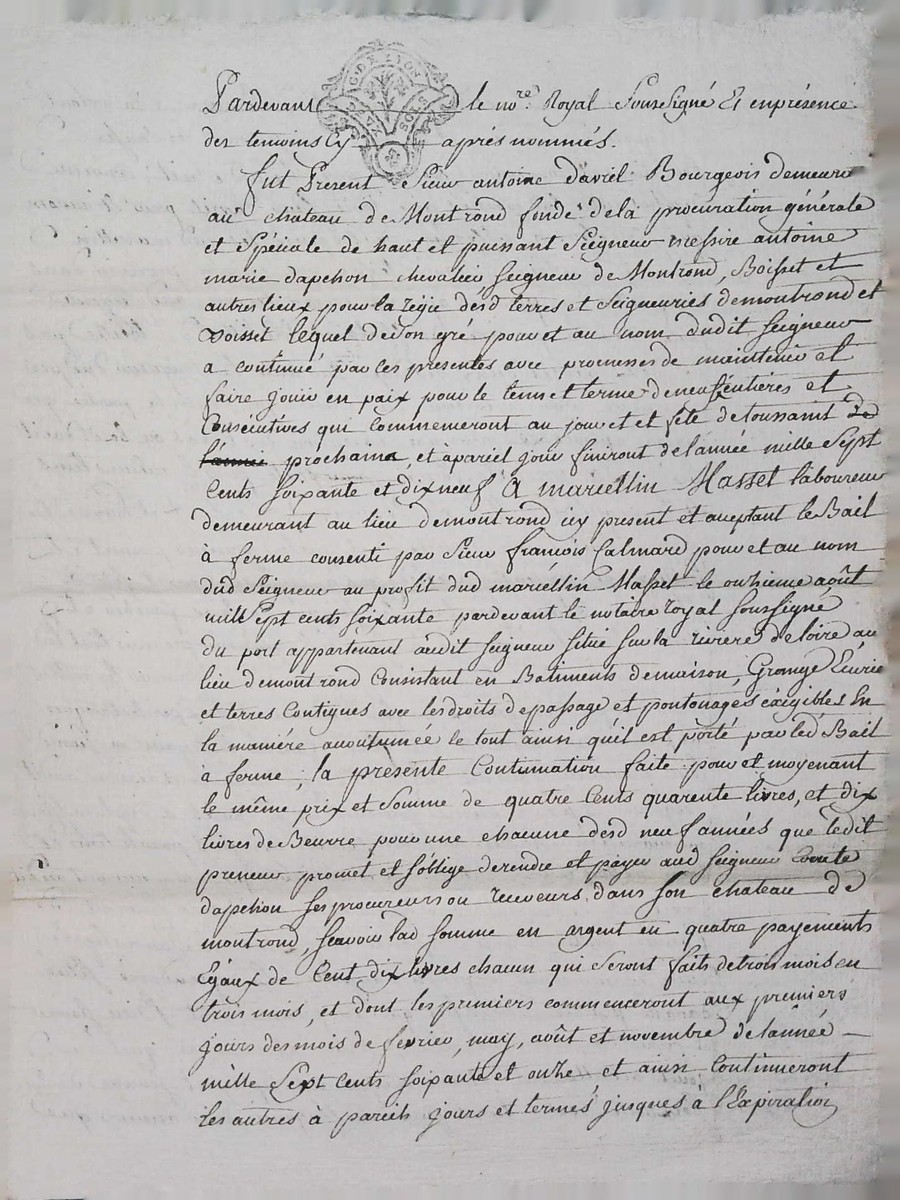 Pardevant le nore. Royal Soussigné Et enprésence
des temoins Cy après nommés.
fut Present Sieur antoine daviel Bourgeois demeurt
au chateau de Montrond fondé dela procuration générale
et Spéciale de haut et puissant Seigneur messire antoine
marie dapchon chevalier, Seigneur de Montrond, Boisset et
autres lieux pour la régie desd terres et Seigneuries demontrond et
Boisset lequel deson gré pour et au nom dudit Seigneur
a continué par ces presentes avec promesses de maintenir et
faire jouir en paix pour le tems et terme deneuf entières et
Consécutives qui commemeront au jour et fête detoussaint de
l'année prochaine, et apareil jour finiront delannée mille Sept
Cents Soixante et dixneuf A marcellin Masset laboureur
demeurant au lieu demontrond icy present et aceptant le Bail
à ferme consenti par Sieur françois Calmard pour et au nom
dud Seigneur au profit dud marcellin Masset le onzieme août
mill Sept cents Soixante pardevant le notaire royal soussigné
du port appartenant audit seigneur situé sur la riviere deloire au
lieu demontrond Consistant en Batiments demaison, Grange Ecurie
et terres Contigues avec lesdroits depassage et pontonages éxigibles En
la maniére accoutumée le tout ainsi quil est porté par led Bail
à ferme, la presente Continuation faite pour et moyenant
le même prix et Somme de quatre Cents quarente livres, et dix
livres de Beurre pour une chacune desd neuf années que ledit
preneur promét et s'oblige derendre et payer aud Seigneur Comte
dapchon ses procureurs ou receveurs dans son chateau de
montrond, scavoir lad somme en argent en quatre payements
Egaux de Cent dix livres chacun qui seront faits detrois mois en
trois mois, et dont les premiers commenceront aux premiers
jours des mois de fevrier, may, août et novembre delannée
mille Sept Cents Soixante et onze et ainsi Continueront
les autres à pareils jours et termes jusques à l'Expiration